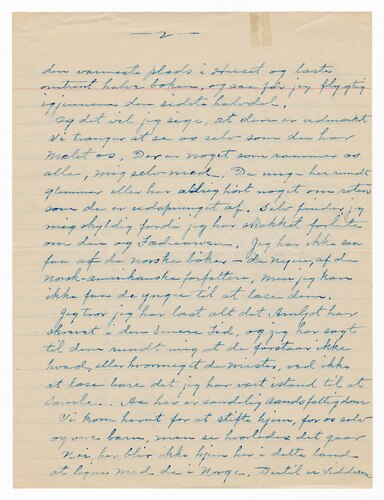 — 2 —
den varmeste plads i Huset og læste
omtrent halve boken, og saa før jeg flygtig
igjennem den sidste halvdel.
Og det vil jeg sige, at den er udmærket
Vi trænger at se os selv som du har
malet os. Der er noget som rammer os
alle, mig selv med. De unge her rundt
glemmer eller har aldrig hørt noget om roten
som de er udsprunget af. Selv finder jeg
mig skyldig fordi jeg har snakket forlite
om den og Fædrearven. Jeg har ikke saa
faa af de norske bøker — de nyere af de
norsk-amerikanske forfattere, men jeg kan
ikke faa de yngre til at læse dem.
Jeg tror jeg har læst alt det
skrevet i den senere Tid, og jeg har sagt
til dem rundt mig at de forstaar ikke
hvad, eller hvormeget de mister, ved ikke
at læse bare det jeg har vært istand til at
samle. . . Aa her er sandelig aandsfattigdom
Vi kom herut for at stifte hjem, for os selv
og vore barn, men se hvorledes det gaar
Nei her blir ikke hjem her i dette land
at ligne med de i Norge. Dertil er Vidderne